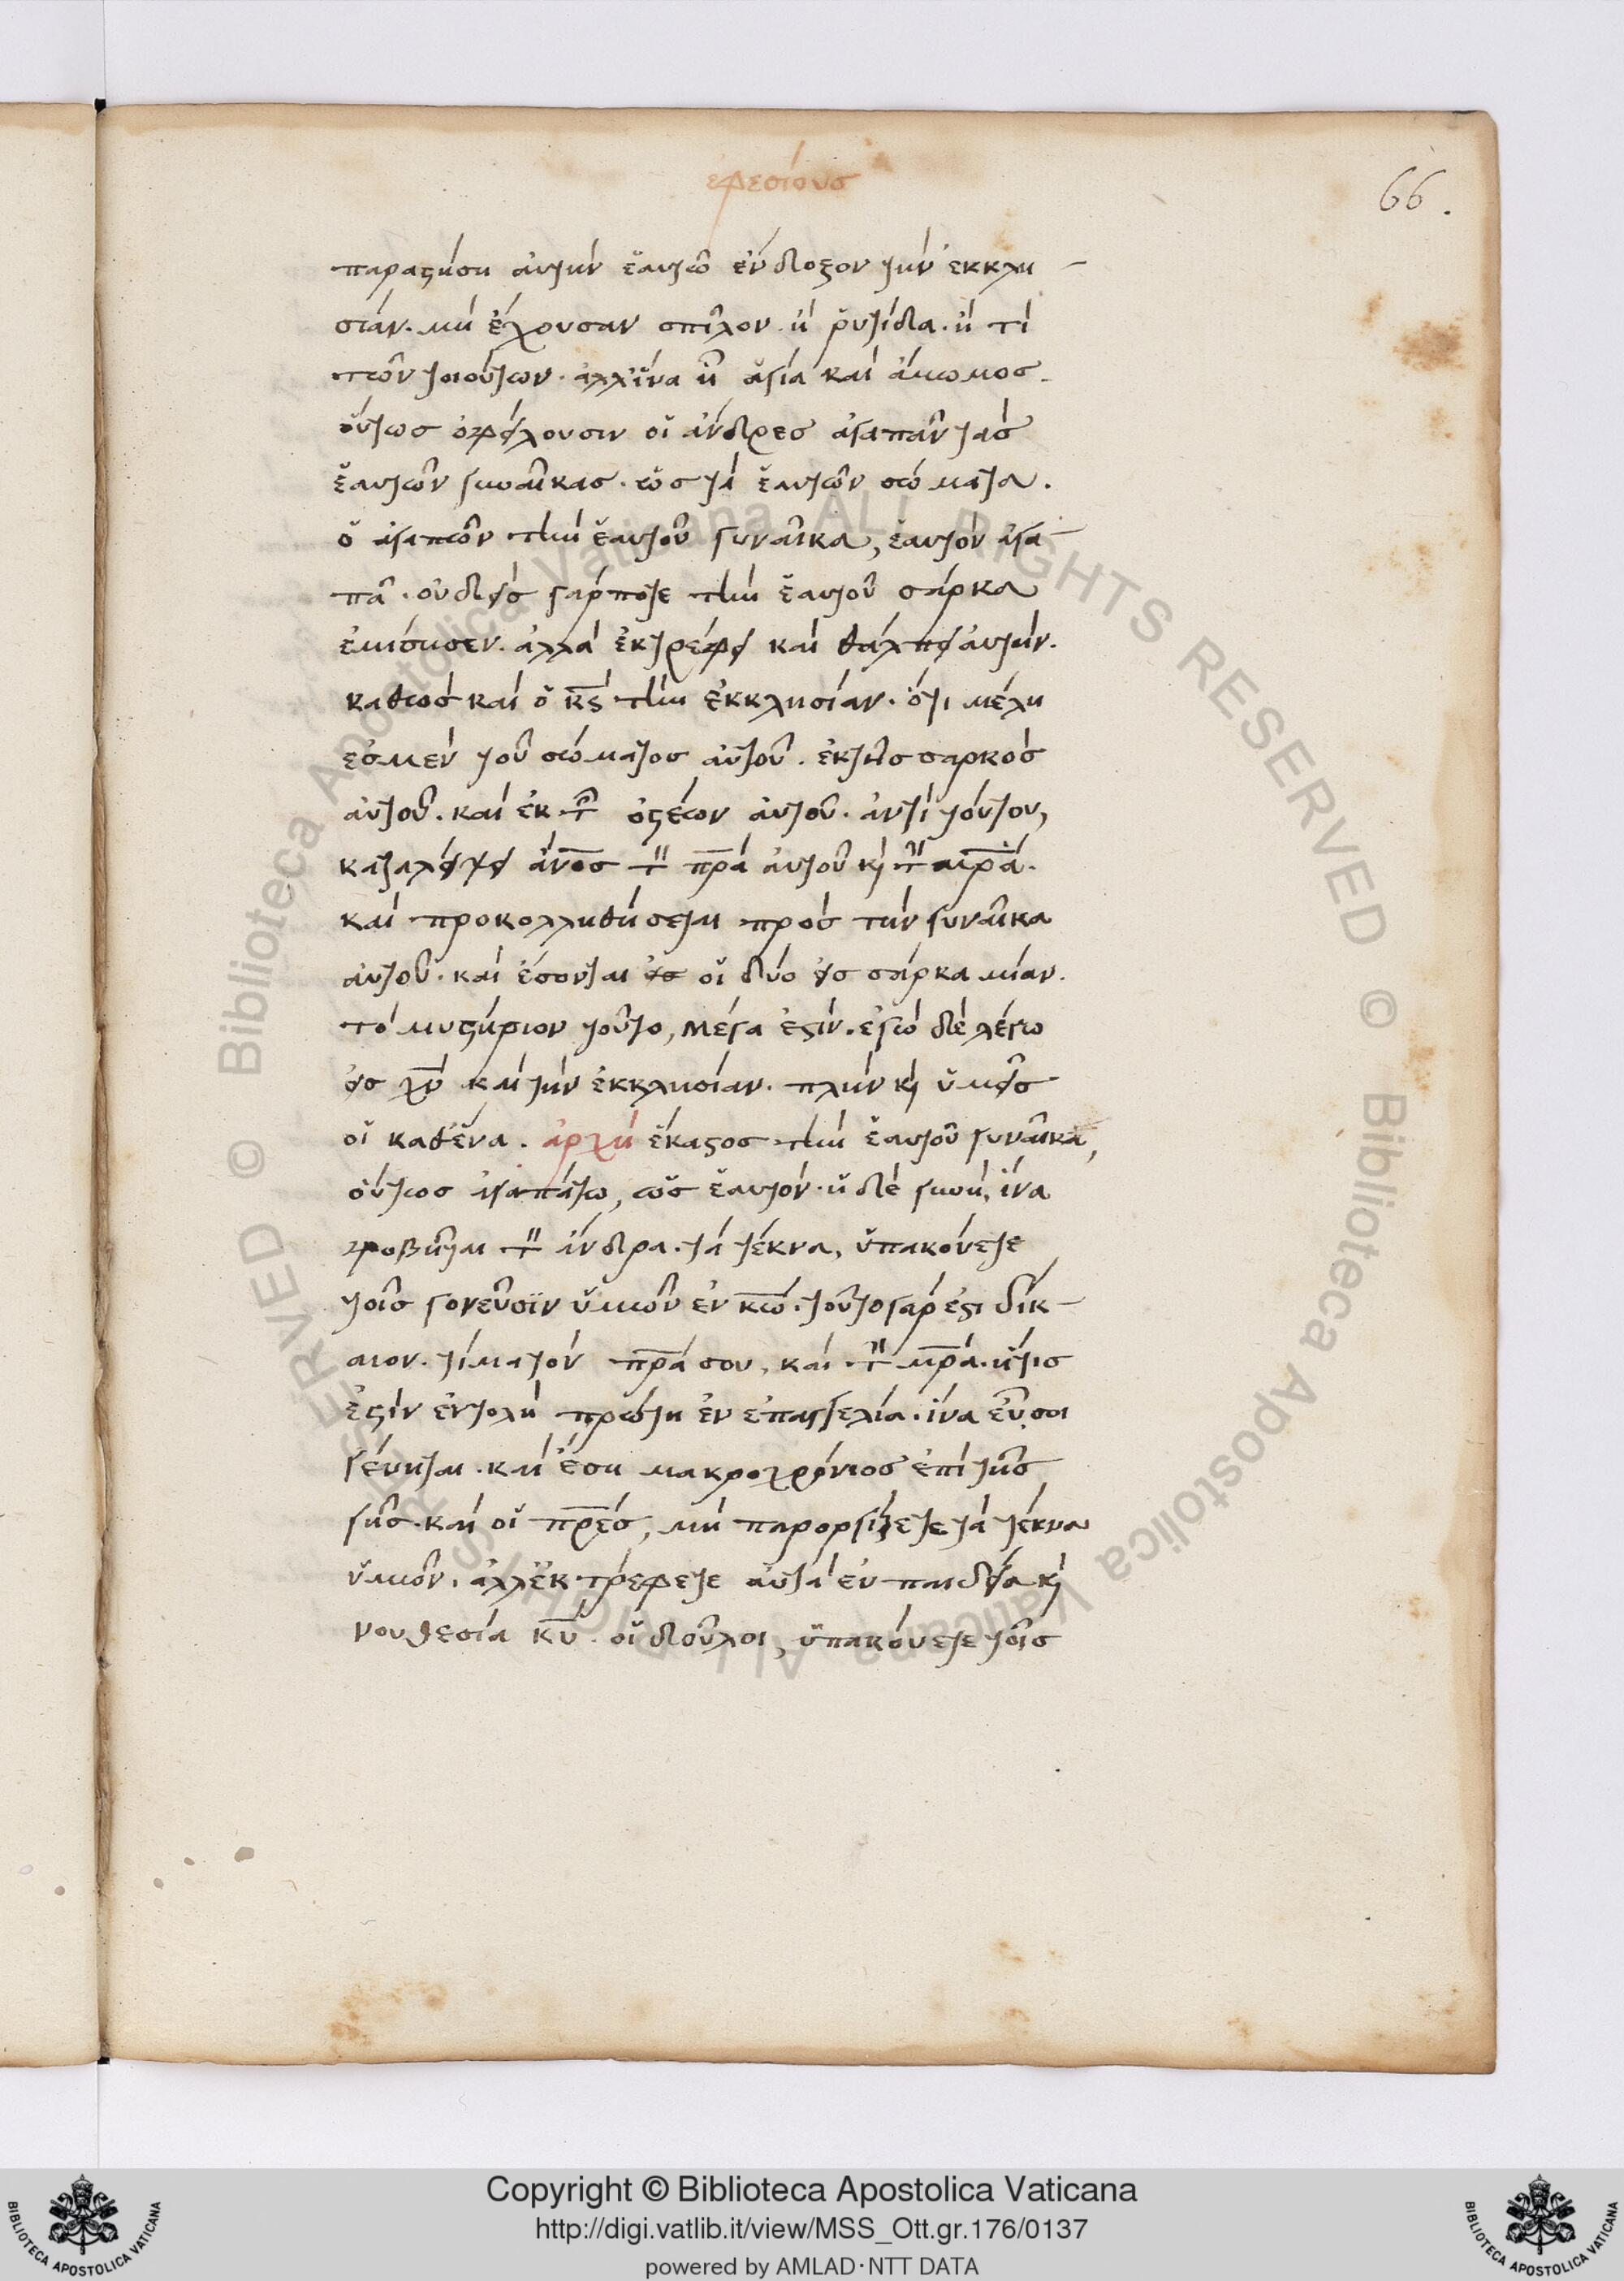 εφεσίους
66.
παραστήση αὐτὴν ἑαυτῶ ἔνδοξον τὴν ἐκκλη
σίαν. μὴ ἔχουσαν σπῖλον. ἢ ῥυτίδα. ἤ τι
τῶν τοιούτων. ἀλλ' ἵνα ἦ ἁγία καὶ ἄμωμος.
οὕτως ὀφείλουσιν οἱ ἄνδρες ἀγαπᾶν τὰς
ἑαυτῶν γυναῖκας. ὡς τὰ ἑαυτῶν σώματα.
ὁ ἀγαπῶν τὴν ἑαυτοῦ γυναῖκα, ἑαυτὸν ἀγα
πᾶ. οὐδεὶς γάρ ποτε τὴν ἑαυτοῦ σάρκα
ἐμίσησεν. ἀλλὰ ἐκτρέφει καὶ θάλπει αὐτήν.
καθὼς καὶ ὁ κς τὴν ἐκκλησίαν. ὅτι μέλη
ἐσμὲν τοῦ σώματος αὐτοῦ. ἐκ τῆς σαρκὸς
αὐτοῦ. καὶ ἐκ τῶν ὀστέων αὐτοῦ. ἀντὶ τούτου,
καταλείψει ἄνος τὸν πρα αὐτοῦ κὶ τὴν μρα.
καὶ προκολληθήσεται πρὸς τὴν γυναῖκα
αὐτοῦ. καὶ ἔσονται οἱ δύο εἰς σάρκα μίαν.
τὸ μυστήριον τοῦτο, μέγα ἐστίν. ἐγὼ δὲ λέγω
εἰς χν καὶ τὴν ἐκκλησίαν. πλὴν κὶ ὑμεῖς
οἱ καθένα. ἀρχὴ ἕκαστος τὴν ἑαυτοῦ γυναῖκα,
οὕτως ἀγαπάτω, ὡς ἑαυτόν. ἡ δὲ γυνὴ, ἵνα
φοβῆται τὸν ἄνδρα. τὰ τέκνα, ὑπακούετε
τοῖς γονεῦσϊν ὑμῶν ἐν κω. τοῦτο γάρ ἐστι δίκ
αιον. τίμα τὸν πρα σου, καὶ τὴν μρα. ἥτις
ἐστὶν ἐντολὴ πρώτη ἐν ἐπαγγελία. ἵνα εὖ σοι
γένηται. καὶ ἔση μακροχρόνιος ἐπὶ τῆς
γῆς. καὶ οἱ πρες, μὴ παροργίζετε τὰ τέκνα
ὑμῶν. ἀλλ' ἐκτρέφετε αὐτὰ ἐν παιδεία κὶ
νουθεσία κυ. οἱ δοῦλοι, ὑπακούετε τοῖς
Copyright © Biblioteca Apostolica Vaticana
http://digi.vatlib.it/view/MSS_Ott.gr.176/0137
powered by AMLAD·NTT DATA